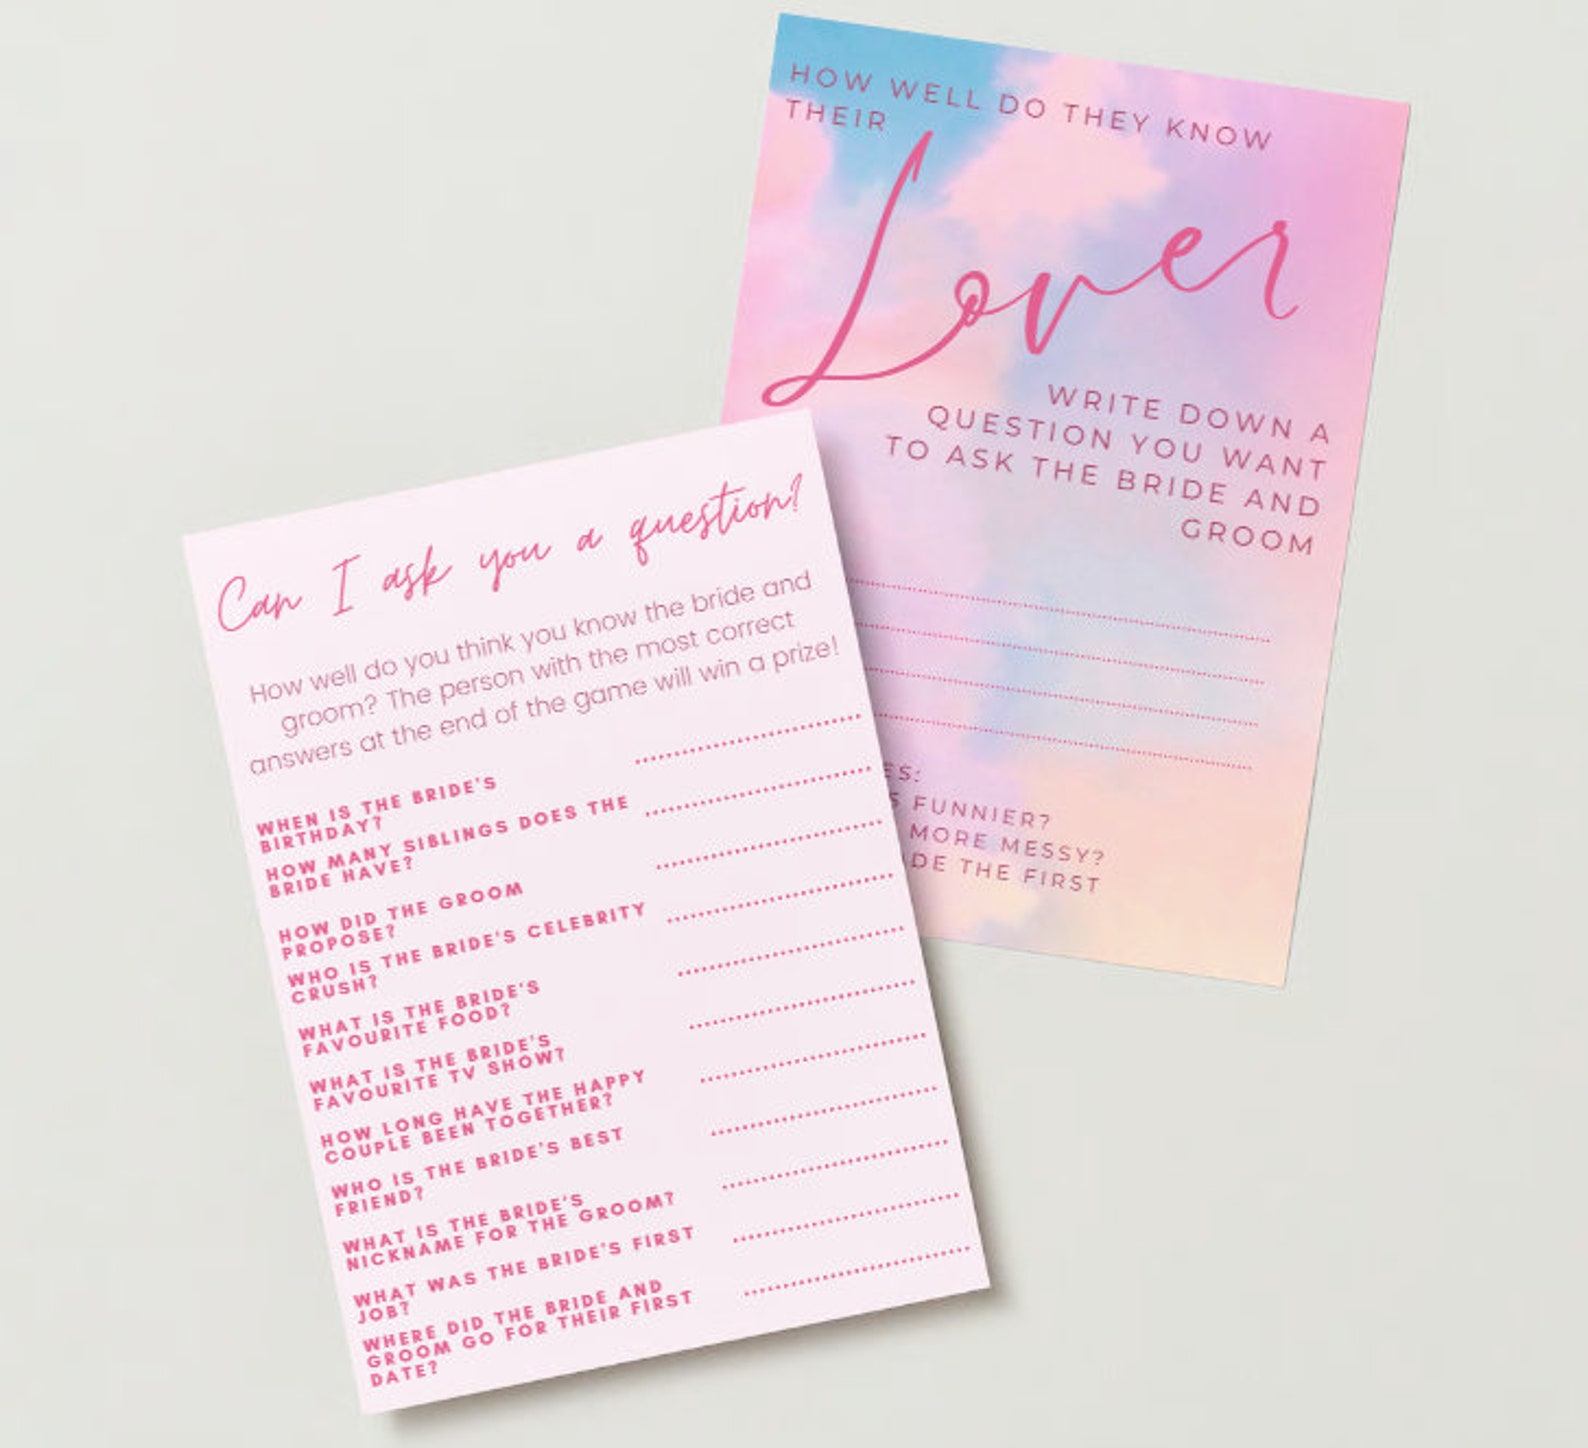 HOW WELL DO THEY KNOW
THEIR
Lover
WRITE DOWN A
QUESTION YOU WANT
TO ASK THE BRIDE AND
GROOM
FUNNIER?
MORE MESSY?
THE FIRST
Can I ask you a question?
How well do you think you know the bride and
groom? The person with the most correct
answers at the end of the game will win a prize!
WHEN IS THE BRIDE'S
BIRTHDAY?
HOW MANY SIBLINGS DOES THE
BRIDE HAVE?
HOW DID THE GROOM
PROPOSE?
WHO IS THE BRIDE'S CELEBRITY
CRUSH?
WHAT IS THE BRIDE'S
FAVOURITE FOOD?
WHAT IS THE BRIDE'S
FAVOURITE TV SHOW?
HOW LONG HAVE THE HAPPY
COUPLE BEEN TOGETHER?
WHO IS THE BRIDE'S BEST
FRIEND?
WHAT IS THE BRIDE'S
NICKNAME FOR THE GROOM?
WHAT WAS THE BRIDE'S FIRST
JOB?
WHERE DID THE BRIDE AND
GROOM GO FOR THEIR FIRST
DATE?